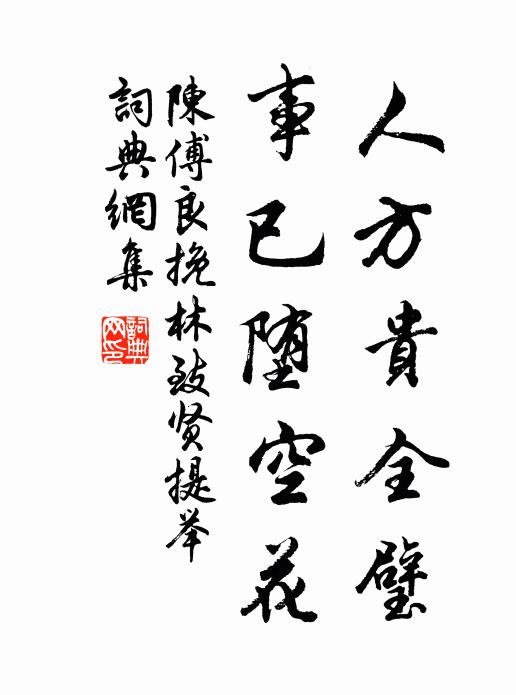 人方貴全璧
事已堕空花
陳傅良挽林致贤提举
詞典網集
詞典網印